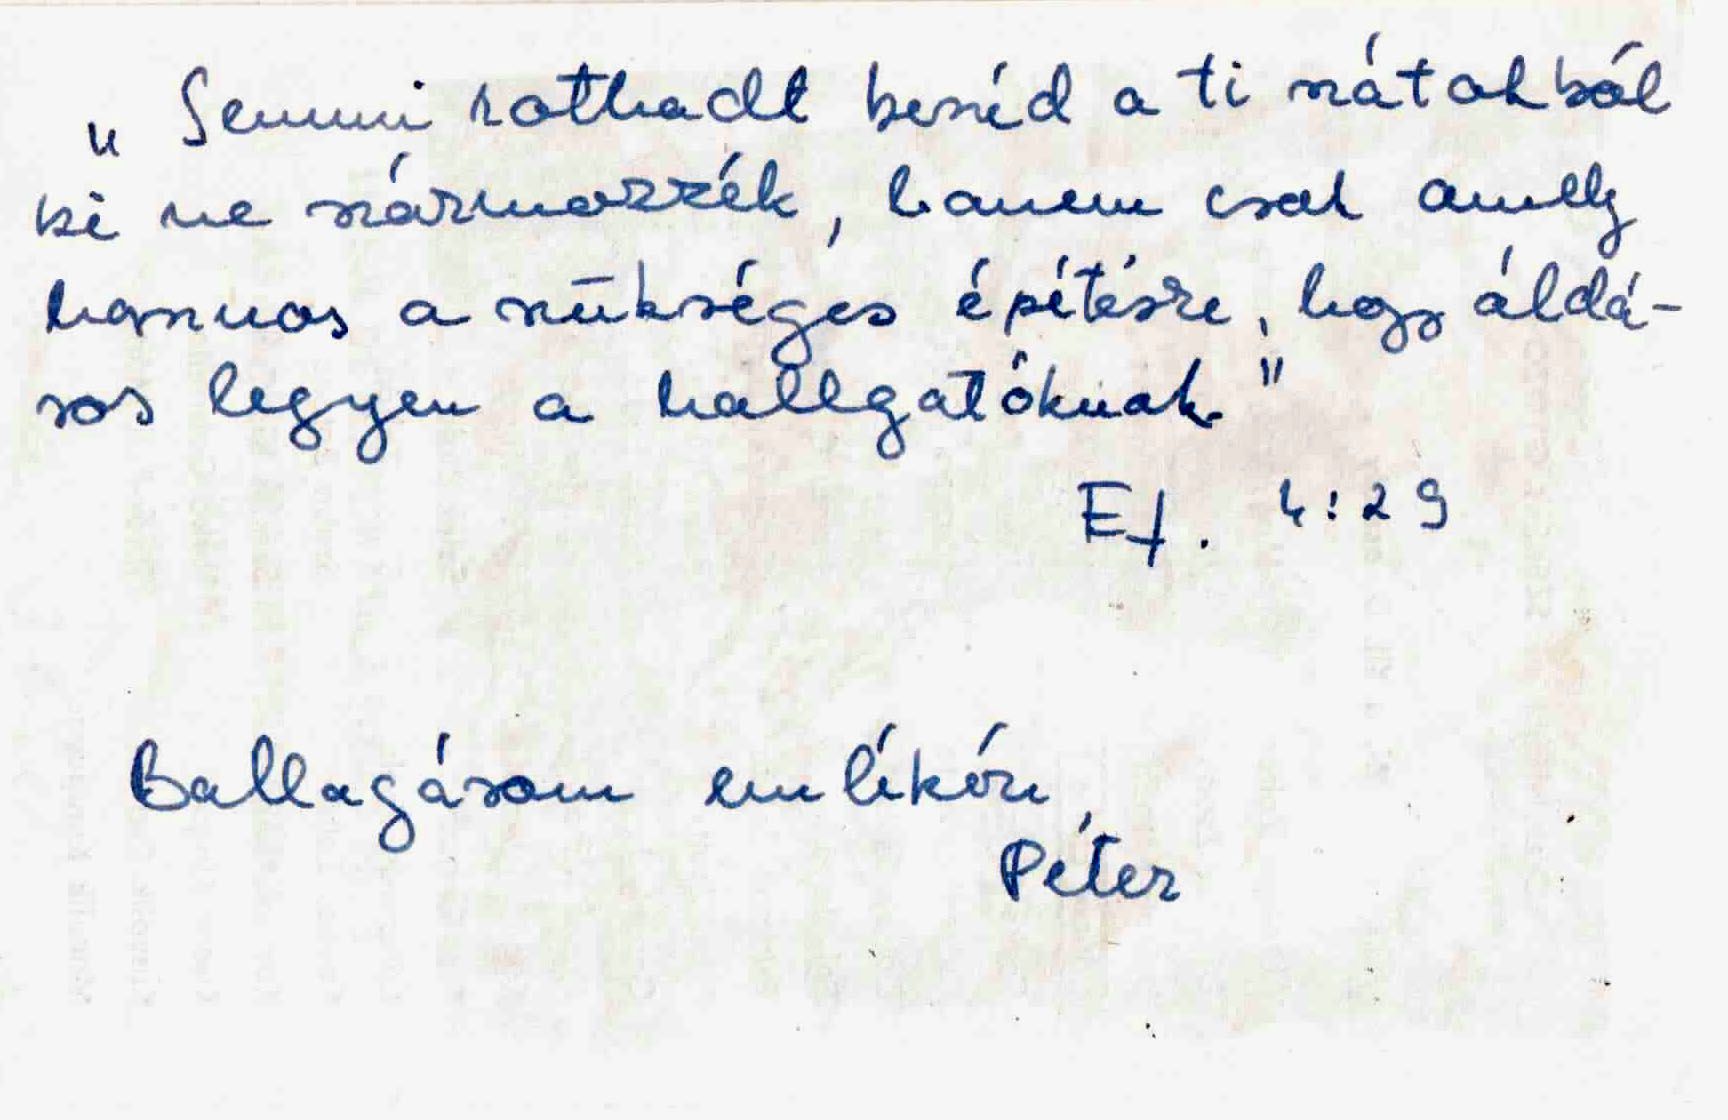 „Semmi rothadt beszéd a ti szátokból
ki ne származzék, hanem csak amely
hasznos a szükséges építésre, hogy áldá-
sos legyen a hallgatóknak"
Ef. 4:29
Ballagásom emlékére,
Péter